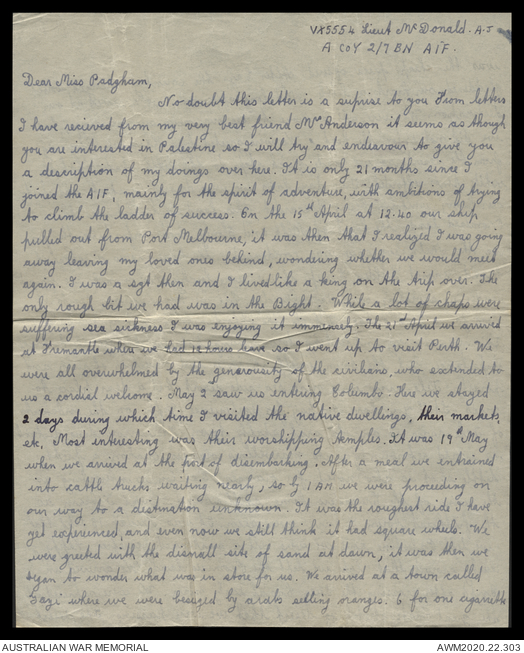 VX5554 Lieut McDonald. A.J
A COY 2/7 BN AIF.
Dear Miss Padgham,
No doubt this letter is a suprise to you From letters
I have recieved from my very best friend Mrs Anderson it seems as though
you are interested in Palestine so I will try and endeavour to give you
a description of my doings over here. It is only 21 months since I
joined the AIF, mainly for the spirit of adventure, with ambitions of trying
to climb the ladder of success. On the 15th April at 12.40 our ship
pulled out from Port Melbourne, it was then that I realized I was going
away leaving my loved ones behind, wondering whether we would meet
again. I was a sgt then and I lived like a king on the trip over. The
only rough bit we had was in the Bight. While a lot of chaps were
suffering sea sickness I was enjoying it immensely. The 21st April we arrived
at Fremantle where we had 12 hours leave so I went up to visit Perth. We
were all overwhelmed by the generousity of the civilians, who extended to
us a cordial welcome. May 2 saw us entering Columbo. Here we stayed
2 days during which time I visited the native dwellings, their markets,
etc, Most interesting was their worshipping temples. It was 19th May
when we arrived at the port of disembarking. After a meal we entrained
into cattle trucks waiting nearby, so by 1 AM we were proceeding on
our way to a distination unknown. It was the roughest ride I have
yet experienced, and even now we still think it had square wheels. We
were greeted with the dismall site of sand at dawn, it was then we
began to wonder what was in store for us. We arrived at a town called
Gazi where we were besiged by arabs selling oranges. 6 for one cigarette
AUSTRALIAN WAR MEMORIAL
AWM2020.22.303